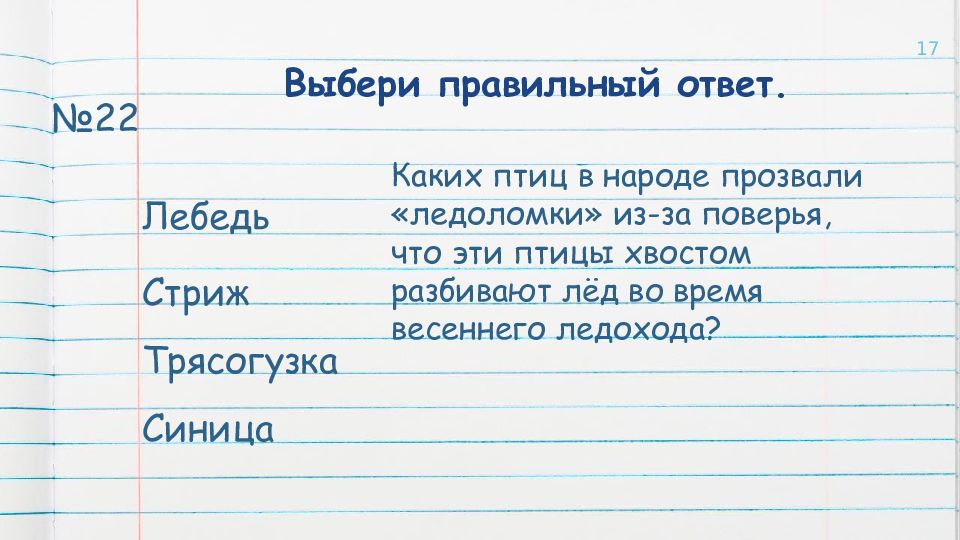 17
Выбери правильный ответ.
№22
Каких птиц в народе прозвали
«ледоломки» из-за поверья,
что эти птицы хвостом
разбивают лёд во время
весеннего ледохода?
Лебедь
Стриж
Трясогузка
Синица